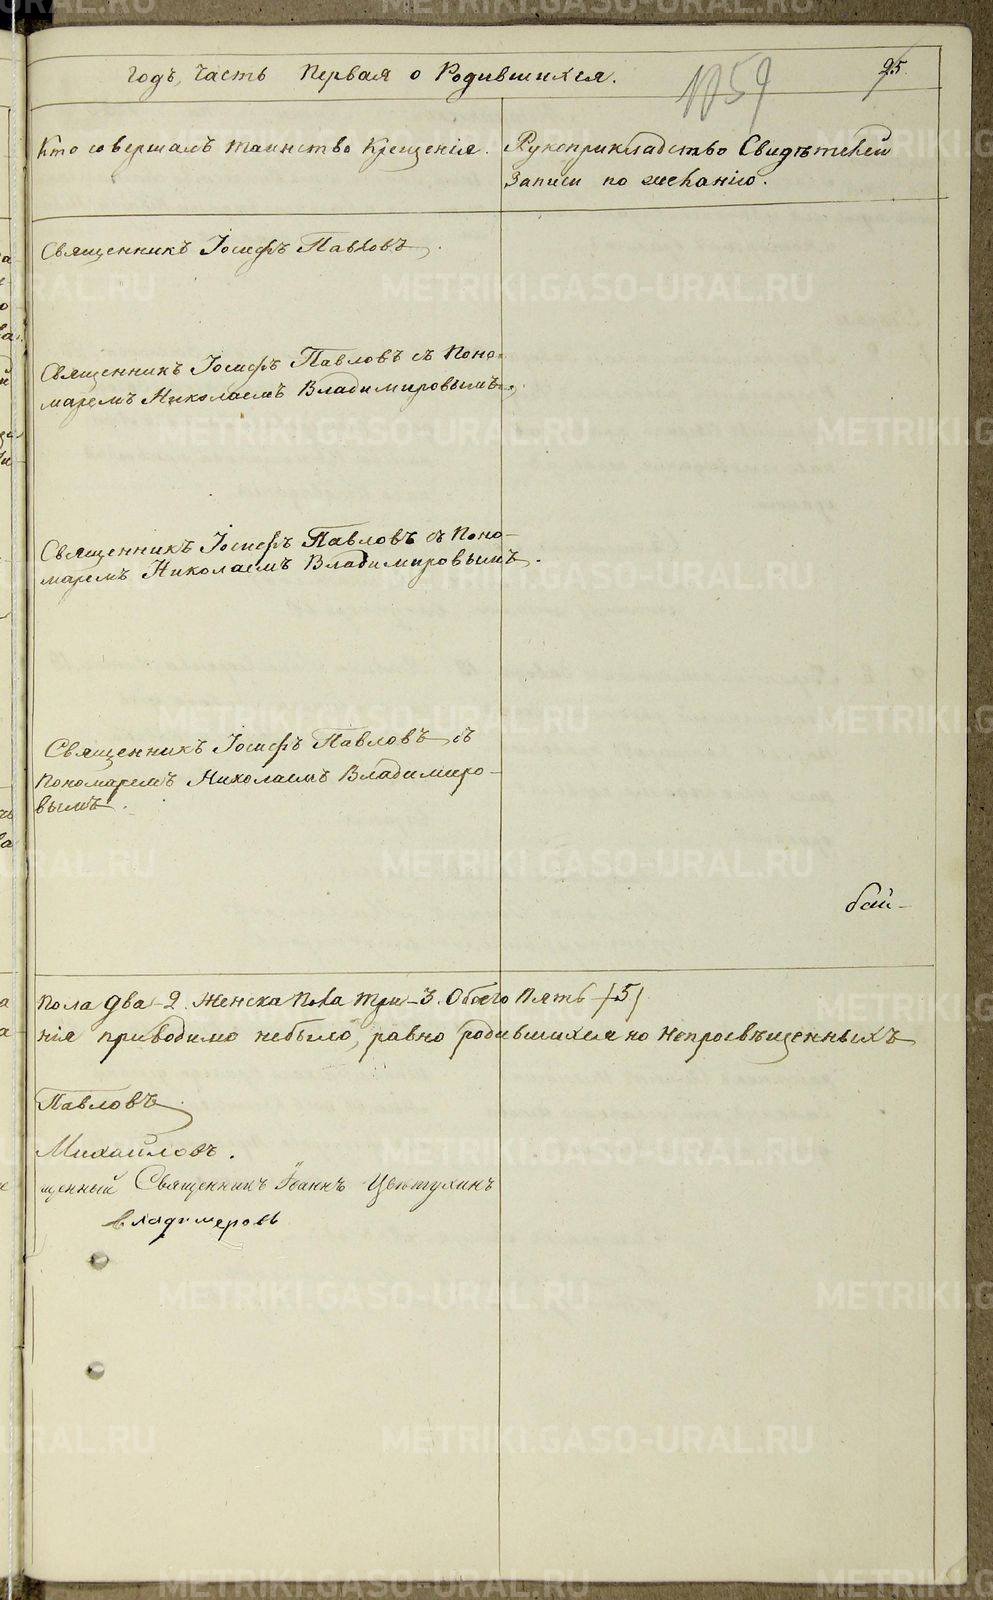 годъ, часть первая о Родившихся.
1059
25
Кто совершалъ таинство Крещенія.
Рукоприкладство Свидѣтелей
записи по желанію.
Священникъ Іосифъ Павловъ.
Священникъ Іосифъ Павловъ съ Поно-
маремъ Николаемъ Владимировымъ.
Священникъ Іосифъ Павловъ съ Поно-
маремъ Николаемъ Владимировымъ.
Священникъ Іосифъ Павловъ съ
Пономаремъ Николаемъ Владимиро-
вымъ.
пола два - 2. Женска пола три - 3. Обоего Пять (5)
нія приводимо небыло, равно родившихся но непросвѣщенныхъ
Павловъ
Михайловъ.
щенный Священникъ Іоаннъ Цветухинъ
Владимеровъ
METRIKI.GASO-URAL.RU